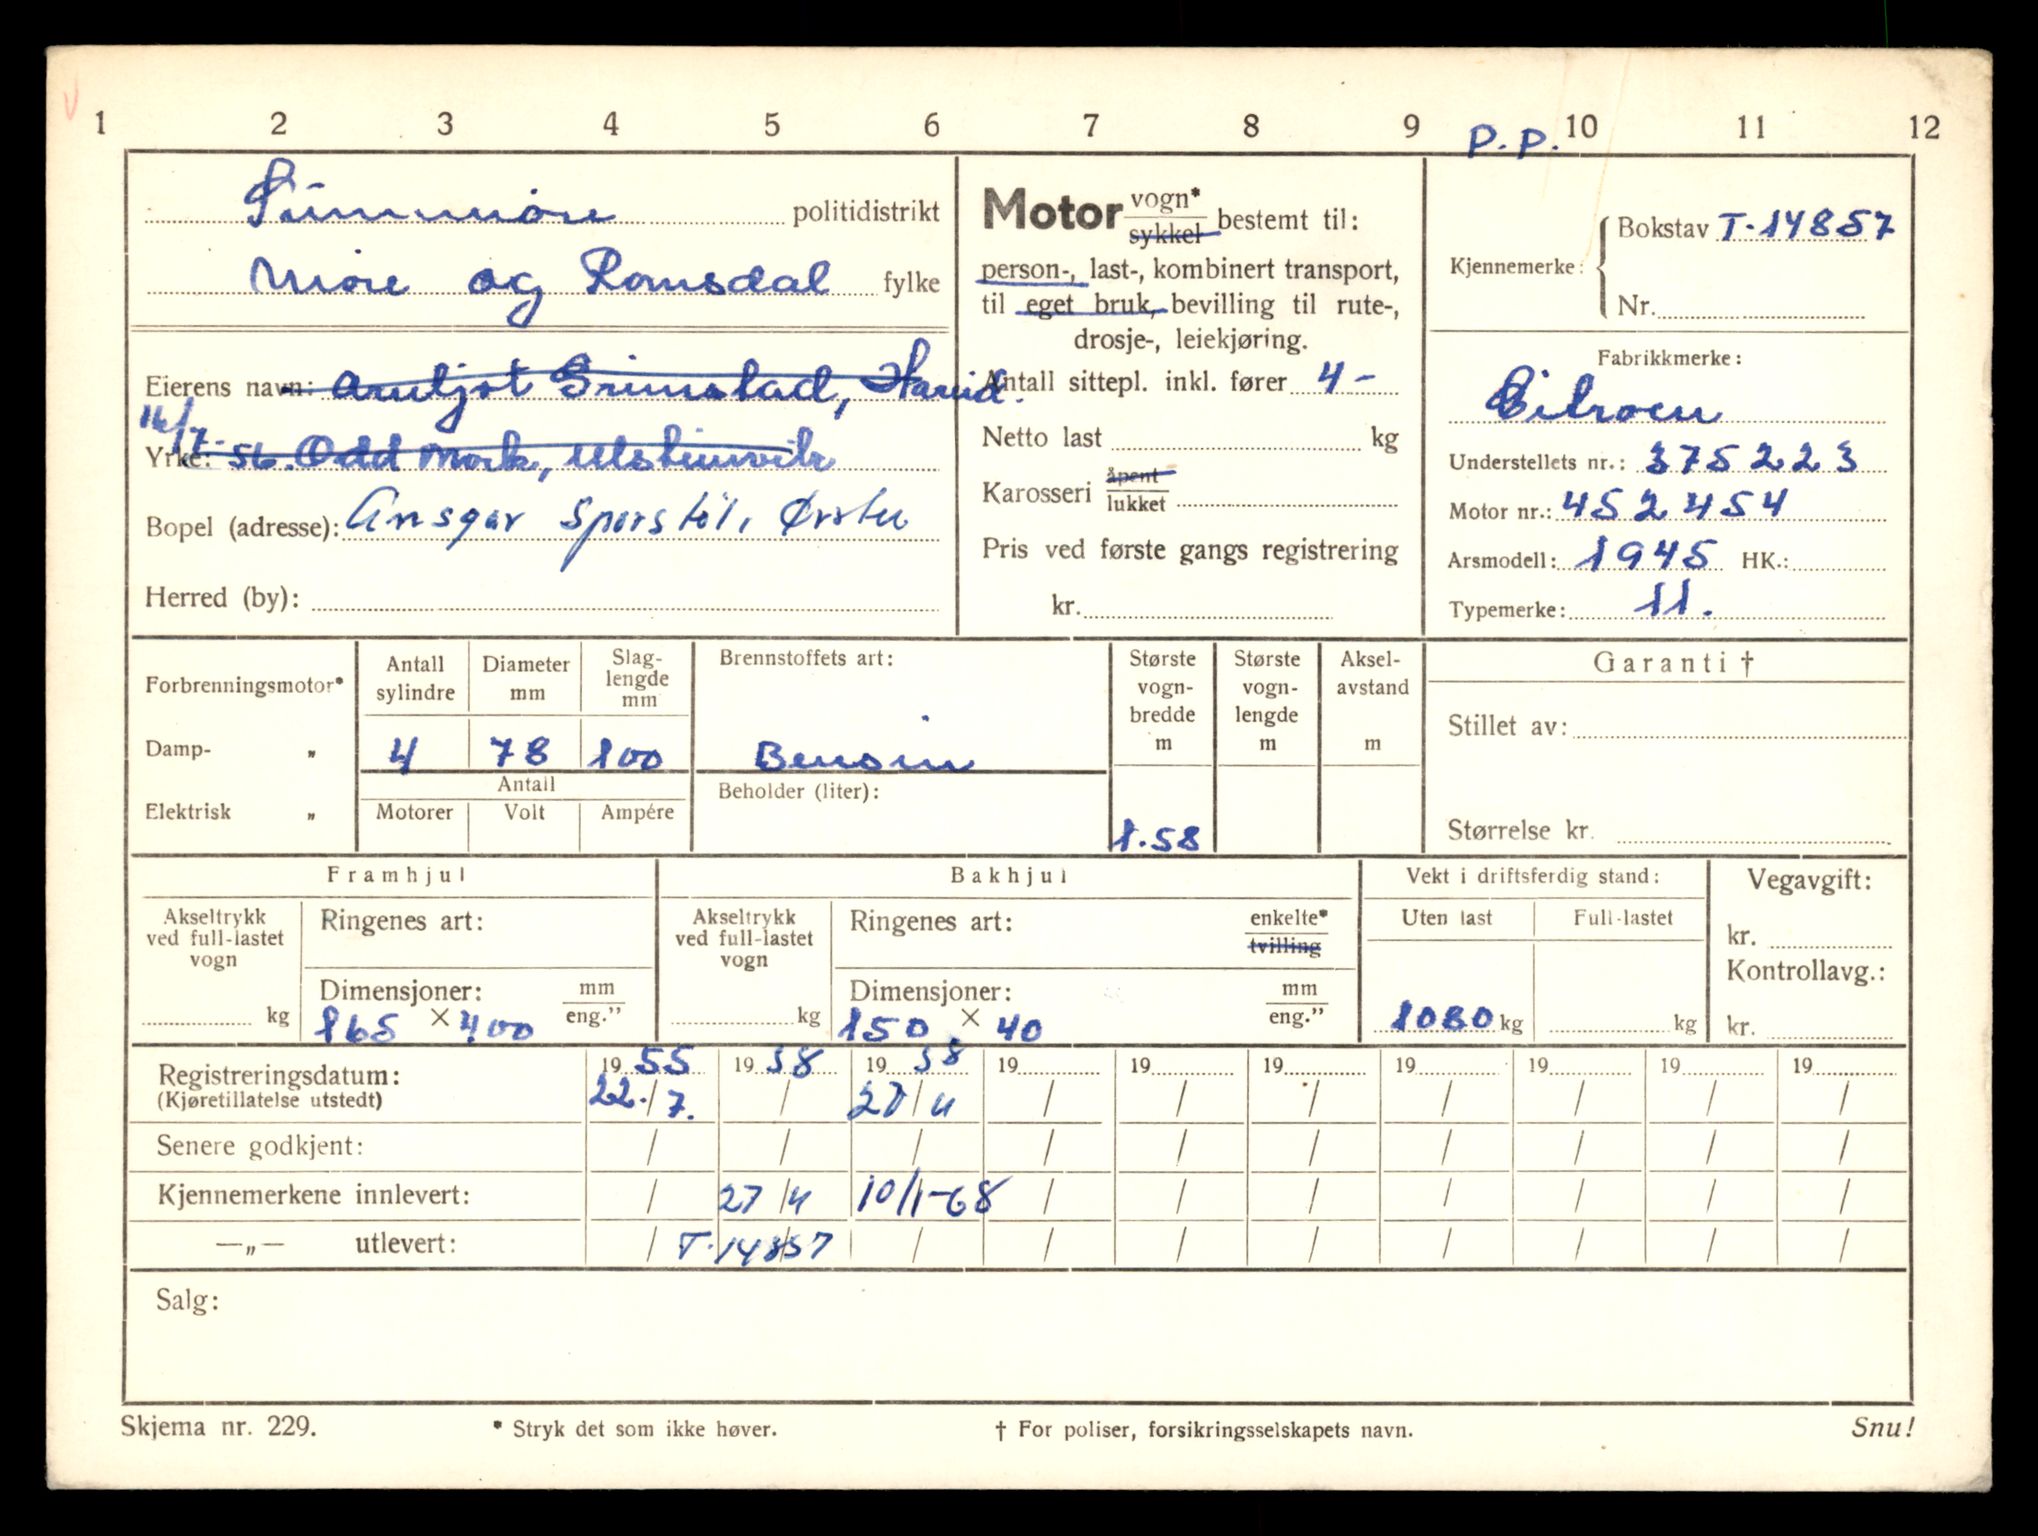 1 2 3 4 5 6 7 8 9 P.P. 10 11 12
Sunnmøre politidistrikt
Møre og Romsdal fylke
Eierens navn: Arnljot Grimstad, Hareid.
16/7-56. Odd Mork, Ulsteinvik
Yrke:
Bopel (adresse): Ansgar Sporstøl, Ørsta
Herred (by):
Motor vogn* sykkel bestemt til:
person-, last-, kombinert transport,
til eget bruk, bevilling til rute-,
drosje-, leiekjøring.
Antall sittepl. inkl. fører 4 -
Netto last kg
Karosseri åpent lukket
Pris ved første gangs registrering
kr.
Kjennemerke: Bokstav T-14857
Nr.
Fabrikkmerke:
Citroen
Understellets nr.: 375223
Motor nr.: 452454
Arsmodell: 1945 HK.:
Typemerke: 11.
Forbrenningsmotor*
Damp- „
Elektrisk „
Antall sylindre
Diameter mm
Slag-
lengde
mm
4 78 100
Antall
Motorer Volt Ampére
Brennstoffets art:
Bensin
Beholder (liter):
Største
vogn-
bredde
m
1.58
Største
vogn-
lengde
m
Aksel-
avstand
m
Garanti †
Stillet av:
Størrelse kr.
Framhjul
Akseltrykk
ved full-lastet
vogn
kg
Ringenes art:
Dimensjoner: mm eng.”
165 × 400
Bakhjul
Akseltrykk
ved full-lastet
vogn
kg
Ringenes art: enkelte* tvilling
Dimensjoner: mm eng.”
150 × 40
Vekt i driftsferdig stand:
Uten last Full-lastet
1080 kg kg
Vegavgift:
kr.
Kontrollavg.:
kr.
Registreringsdatum: 19 55 19 58 19 58 19 19 19 19 19 19 19
(Kjøretillatelse utstedt) 22./7. / 27/4 / / / / / / /
Senere godkjent: / / / / / / / / / /
Kjennemerkene innlevert: / 27/4 10/1-68 / / / / / / /
—„— utlevert: / T-14857 / / / / / / / /
Salg:
Skjema nr. 229. * Stryk det som ikke høver. † For poliser, forsikringsselskapets navn. Snu!